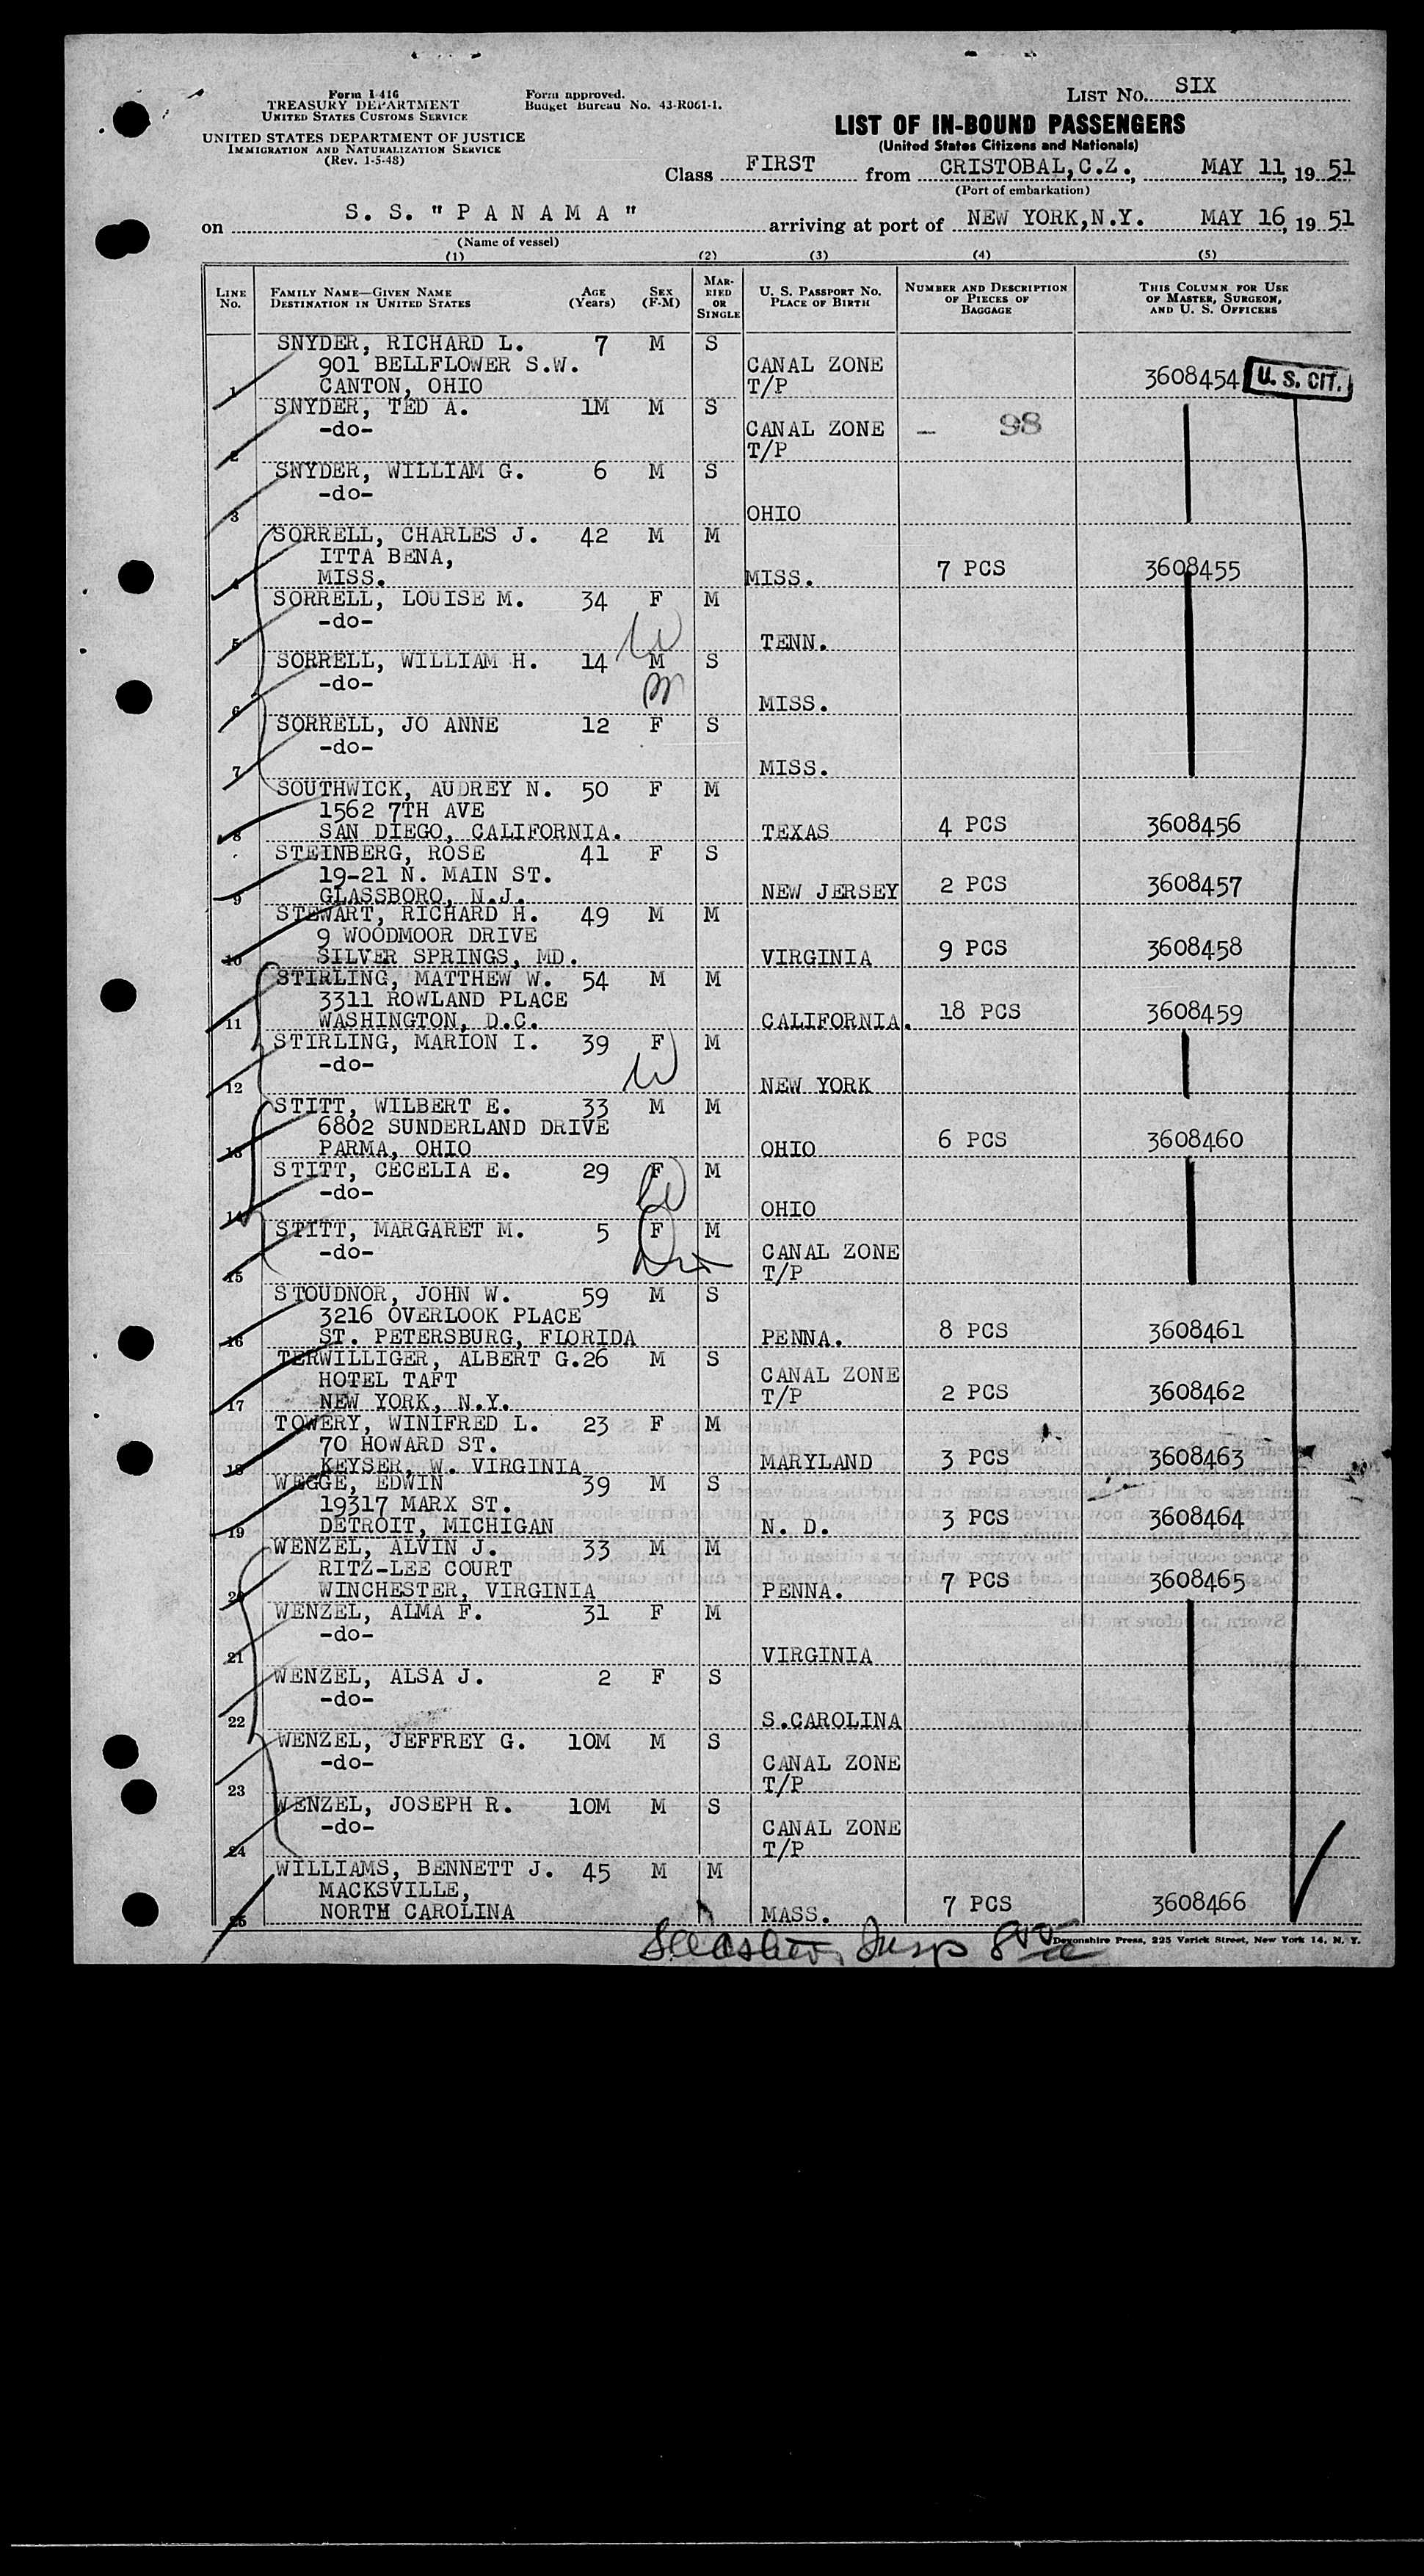 Form I-416
TREASURY DEPARTMENT
UNITED STATES CUSTOMS SERVICE
UNITED STATES DEPARTMENT OF JUSTICE
IMMIGRATION AND NATURALIZATION SERVICE
(Rev. 1-5-48)
Form approved.
Budget Bureau No. 43-R061-1.
LIST NO. SIX
LIST OF IN-BOUND PASSENGERS
(United States Citizens and Nationals)
Class FIRST from CRISTOBAL,C.Z., MAY 11, 19 51
(Port of embarkation)
on S. S. "PANAMA" arriving at port of NEW YORK,N.Y. MAY 16, 19 51
(Name of vessel)
(1) (2) (3) (4) (5)
LINE NO. FAMILY NAME—GIVEN NAME DESTINATION IN UNITED STATES AGE (Years) SEX (F-M) MARRIED OR SINGLE U. S. PASSPORT NO. PLACE OF BIRTH NUMBER AND DESCRIPTION OF PIECES OF BAGGAGE THIS COLUMN FOR USE OF MASTER, SURGEON, AND U. S. OFFICERS
SNYDER, RICHARD L. 7 M S
901 BELLFLOWER S.W. CANAL ZONE
1 CANTON, OHIO T/P 3608454 U. S. CIT.
SNYDER, TED A. 1M M S
-do- CANAL ZONE — 98
2 T/P
SNYDER, WILLIAM G. 6 M S
-do-
3 OHIO
SORRELL, CHARLES J. 42 M M
ITTA BENA,
4 MISS. MISS. 7 PCS 3608455
SORRELL, LOUISE M. 34 F M
-do- W
5 TENN.
SORRELL, WILLIAM H. 14 M S
-do- m
6 MISS.
SORRELL, JO ANNE 12 F S
-do-
7 MISS.
SOUTHWICK, AUDREY N. 50 F M
1562 7TH AVE
8 SAN DIEGO, CALIFORNIA. TEXAS 4 PCS 3608456
STEINBERG, ROSE 41 F S
19-21 N. MAIN ST.
9 GLASSBORO, N.J. NEW JERSEY 2 PCS 3608457
STEWART, RICHARD H. 49 M M
9 WOODMOOR DRIVE
10 SILVER SPRINGS, MD. VIRGINIA 9 PCS 3608458
STIRLING, MATTHEW W. 54 M M
3311 ROWLAND PLACE
11 WASHINGTON, D.C. CALIFORNIA. 18 PCS 3608459
STIRLING, MARION I. 39 F M
-do- W
12 NEW YORK
STITT, WILBERT E. 33 M M
6802 SUNDERLAND DRIVE
13 PARMA, OHIO OHIO 6 PCS 3608460
STITT, CECELIA E. 29 F M
-do- W
14 OHIO
STITT, MARGARET M. 5 F M
-do- CANAL ZONE
15 T/P
STOUDNOR, JOHN W. 59 M S
3216 OVERLOOK PLACE
16 ST. PETERSBURG, FLORIDA PENNA. 8 PCS 3608461
TERWILLIGER, ALBERT G. 26 M S
HOTEL TAFT CANAL ZONE
17 NEW YORK, N.Y. T/P 2 PCS 3608462
TOWERY, WINIFRED L. 23 F M
70 HOWARD ST.
18 KEYSER, W. VIRGINIA MARYLAND 3 PCS 3608463
WEGGE, EDWIN 39 M S
19317 MARX ST.
19 DETROIT, MICHIGAN N. D. 3 PCS 3608464
WENZEL, ALVIN J. 33 M M
RITZ-LEE COURT
20 WINCHESTER, VIRGINIA PENNA. 7 PCS 3608465
WENZEL, ALMA F. 31 F M
-do-
21 VIRGINIA
WENZEL, ALSA J. 2 F S
-do-
22 S.CAROLINA
WENZEL, JEFFREY G. 10M M S
-do- CANAL ZONE
23 T/P
WENZEL, JOSEPH R. 10M M S
-do- CANAL ZONE
24 T/P
WILLIAMS, BENNETT J. 45 M M
MACKSVILLE,
25 NORTH CAROLINA MASS. 7 PCS 3608466
Devonshire Press, 225 Varick Street, New York 14, N. Y.